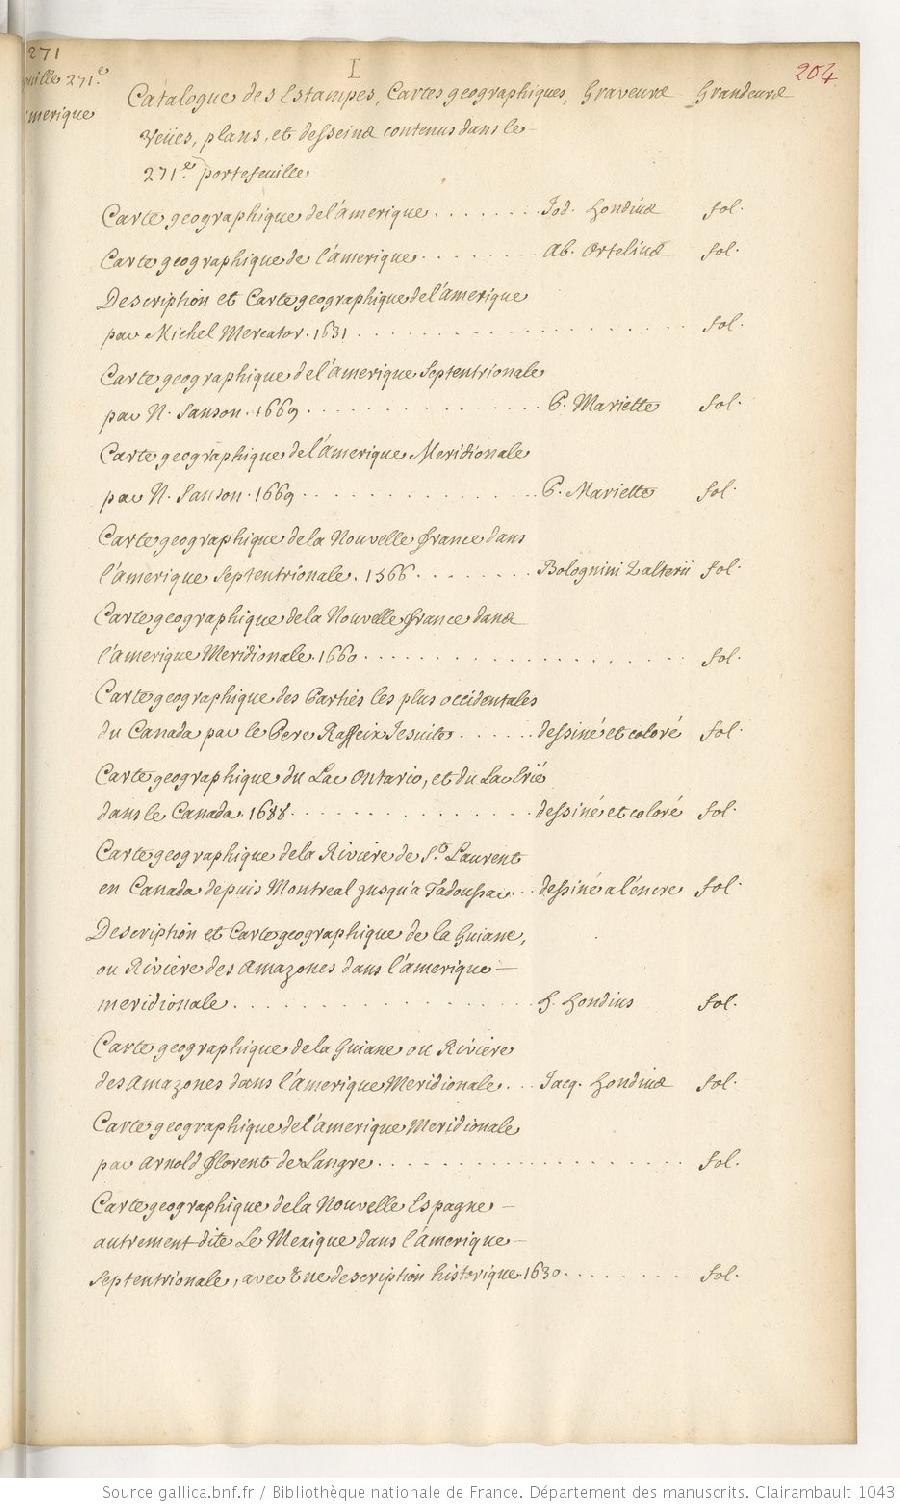 271
271.e
I
204
Catalogue des Estampes, Cartes geographiques, Graveurs Grandeurs
Veües, plans, et desseins contenus dans le
271.e portefeuille
Carte geographique de l'amerique ....... Jod. hondius fol.
Carte geographique de l'amerique ....... Ab. Ortelius fol.
Description et Carte geographique de l'amerique
par Michel Mercator. 1631 ....... fol.
Carte geographique de l'amerique Septentrionale
par N. Sanson. 1669 ....... P. Mariette fol.
Carte geographique de l'amerique Meridionale
par N. Sanson. 1669 ....... P. Mariette fol.
Carte geographique de la Nouvelle france dans
l'amerique Septentrionale. 1566 ....... Bolognini Zalterii fol.
Carte geographique de la Nouvelle france dans
l'amerique Meridionale. 1660 ....... fol.
Carte geographique des Parties les plus occidentales
du Canada par le Pere Raffeix Jesuite ....... dessiné et coloré fol.
Carte geographique du Lac Ontario, et du Lac Erié
dans le Canada. 1688 ....... dessiné et coloré fol.
Carte geographique de la Riviere de St. Laurent
en Canada depuis Montreal jusqu'a Tadoussac ... dessiné a l'encre fol.
Description et Carte geographique de la Guiane,
ou Riviere des Amazones dans l'amerique
meridionale ....... h. hondius fol.
Carte geographique de la Guiane ou Riviere
des Amazones dans l'amerique Meridionale ... Jacq. hondius fol.
Carte geographique de l'amerique Meridionale
par Arnold florent de Langre ....... fol.
Carte geographique de la Nouvelle Espagne
autrement dite Le Mexique dans l'amerique
Septentrionale, avec Une description historique. 1630 ....... fol.
Source gallica.bnf.fr / Bibliothèque nationale de France. Département des manuscrits. Clairambault 1043